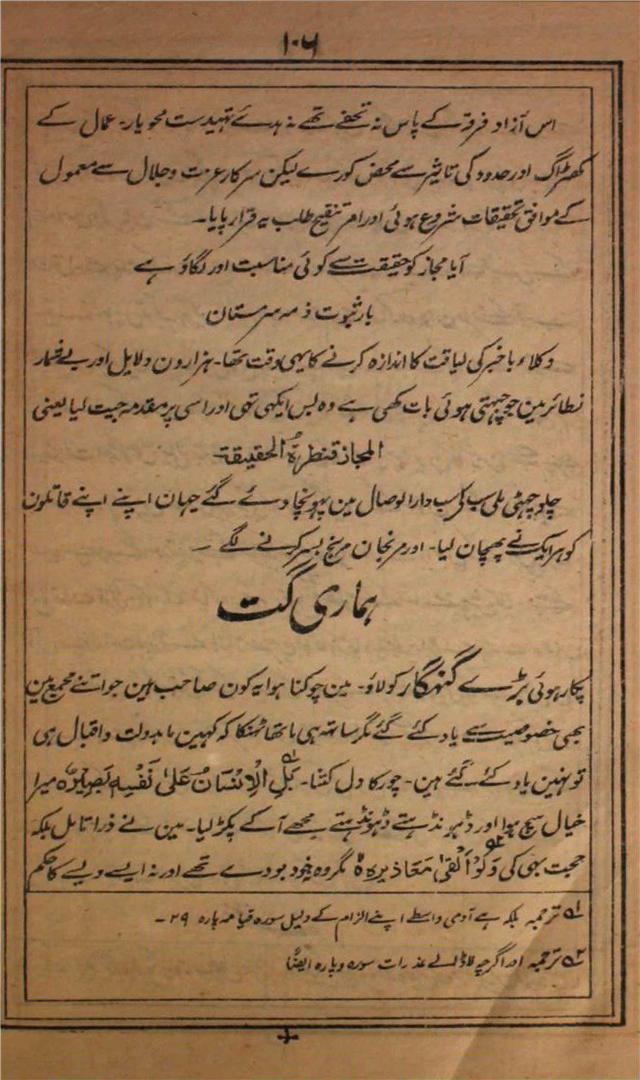 ۱۰۶
اس آزاد فرقہ کے پاس نہ تحفے تھے نہ ہدئے تہیدست محو یار۔ عمال کے
اور حدود کی تاثیر سے محض کورے لیکن سرکار عزت و جلال سے معمول
کے موافق تحقیقات شروع ہوئی اور امر تنقیح طلب یہ قرار پایا۔
آیا مجاز کو حقیقت سے کوئی مناسبت اور لگاؤ ہے
بار ثبوت ذمہ سرمستان
وکلاء باخبر کی لیاقت کا اندازہ کرنے کا یہی وقت تھا۔ ہزارون دلایل اور بے شمار
نظائر مین جو چبہتی ہوئی بات کہی ہے وہ بس ایکہی تھی اور اسی پر مقدمہ جیت لیا یعنی
المجاز قنطرۃ الحقیقۃ
چلو چہٹی ملی سب کے سب دار الوصال مین پہونچا دئے گئے جہان اپنے اپنے قاتلون
کو ہر ایک نے پہچان لیا۔ اور مرنجان مرنج بسر کرنے لگے ۔
ہماری گت
پکار ہوئی بڑے گنہگار کو لاؤ۔ مین چوکنا ہوا یہ کون صاحب ہین جو اتنے مجمع مین
بھی خصوصیت سے یاد کئے گئے مگر ساتھ ہی ماتھا ٹہنکا کہ کہین مابدولت و اقبال ہی
تو نہین یاد کئے گئے ہین۔ چور کا دل کتنا۔ بَلِ الْاِنْسَانُ عَلٰی نَفْسِہٖ بَصِیْرَۃٌ ۱؎ میرا
خیال سچ ہوا اور ڈہونڈہتے ڈہونڈہتے مجھے آ کے پکڑ لیا۔ مین نے ذرا تامل بلکہ
حجت بھی کی وَلَوْ اَلْقٰی مَعَاذِیْرَہٗ ۲؎ مگر وہ چوبدار نہ ایسے ویسے کا حکم
۱؎ ترجمہ بلکہ ہے آدمی واسطے اپنے الزام کے دلیل سورہ قیامہ پارہ ۲۹ ۔
۲؎ ترجمہ اور اگرچہ لا ڈالے عذرات سورہ و پارہ ایضًا